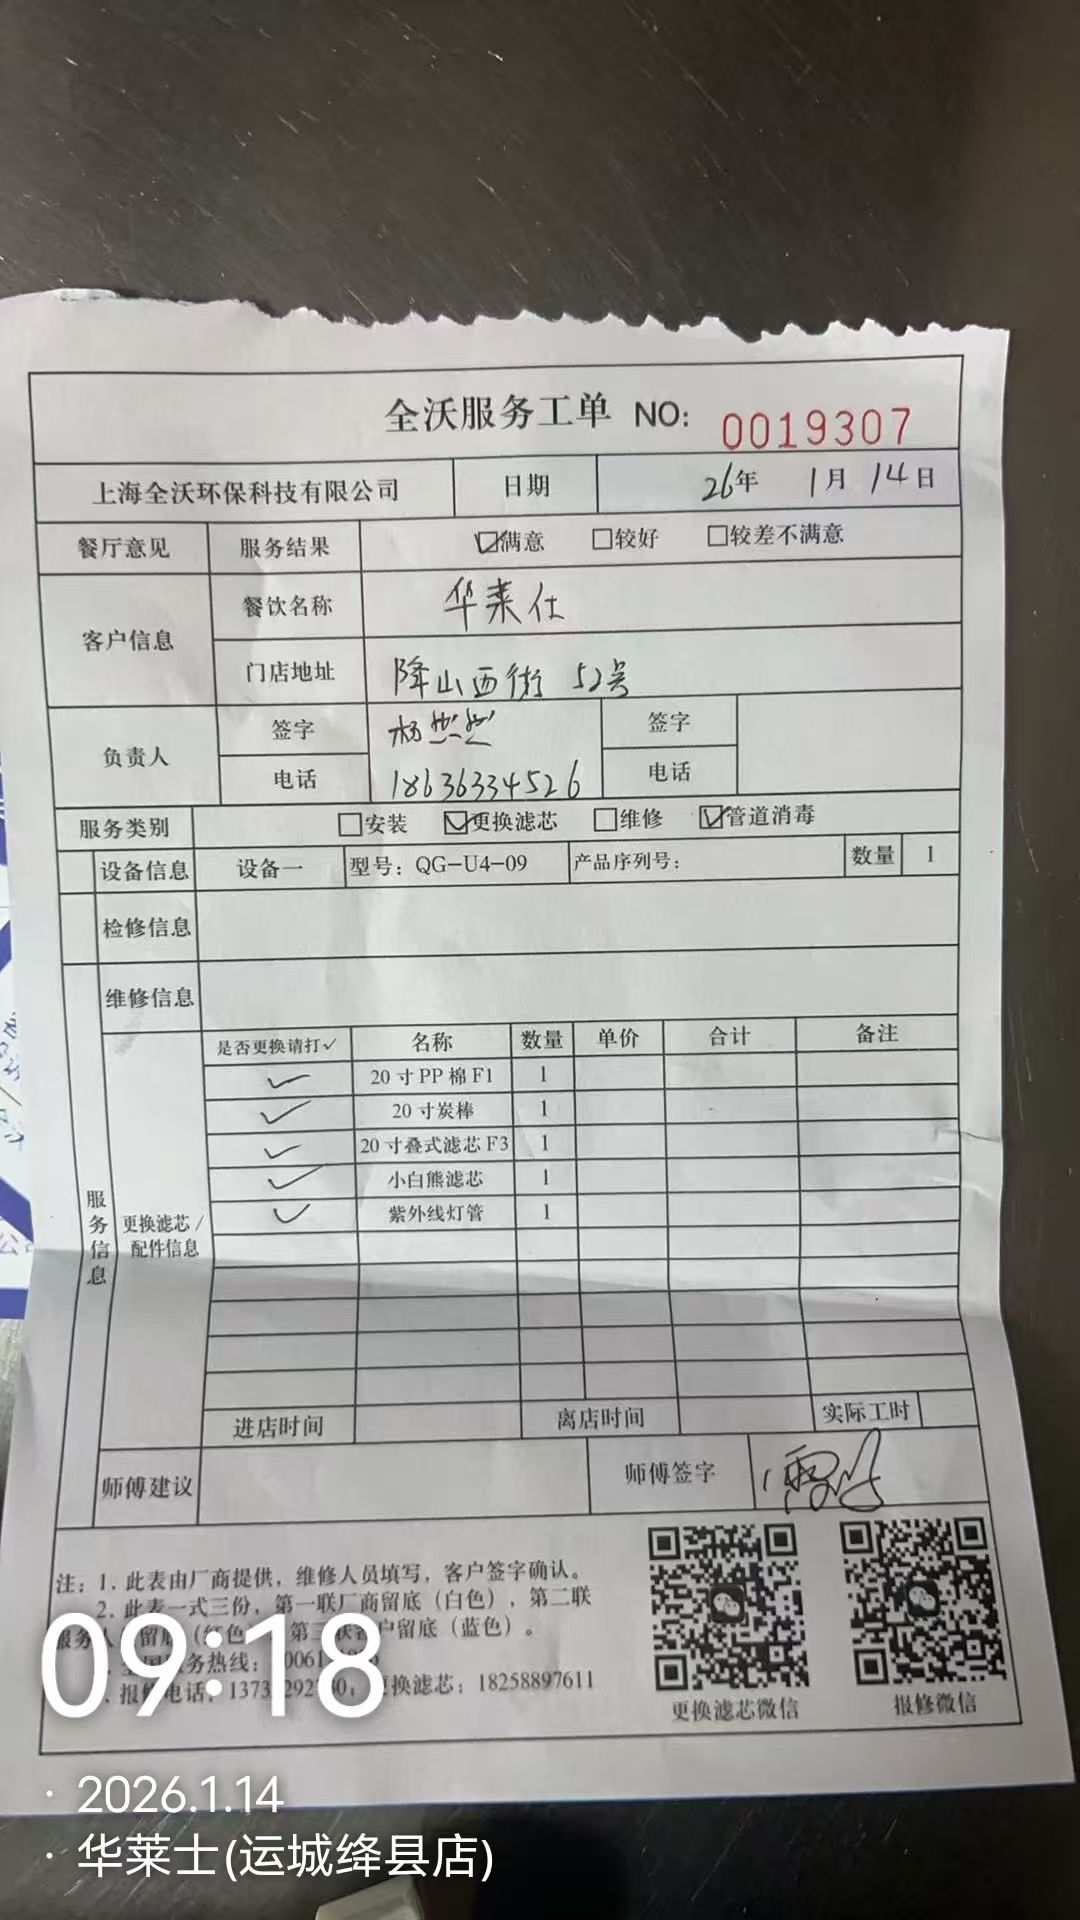 全沃服务工单 NO: 0019307
上海全沃环保科技有限公司 日期 26年 1月 14日
餐厅意见 服务结果 ☑满意 ☐较好 ☐较差不满意
客户信息 餐饮名称 华莱仕
门店地址 降山西街 52号
负责人 签字 杨 签字
电话 18636334526 电话
服务类别 ☐安装 ☑更换滤芯 ☐维修 ☑管道消毒
设备信息 设备一 型号：QG-U4-09 产品序列号： 数量 1
检修信息
维修信息
服务信息
更换滤芯/配件信息
是否更换请打✓ 名称 数量 单价 合计 备注
✓ 20寸PP棉F1 1
✓ 20寸炭棒 1
✓ 20寸叠式滤芯F3 1
✓ 小白熊滤芯 1
✓ 紫外线灯管 1
进店时间 离店时间 实际工时
师傅建议 师傅签字
注：1. 此表由厂商提供，维修人员填写，客户签字确认。
2. 此表一式三份，第一联厂商留底（白色），第二联
服务人 留底（红色 第三联客户留底（蓝色）。
全国服务热线：
报修电话： 更换滤芯：18258897611
更换滤芯微信 报修微信
09:18
· 2026.1.14
· 华莱士(运城绛县店)